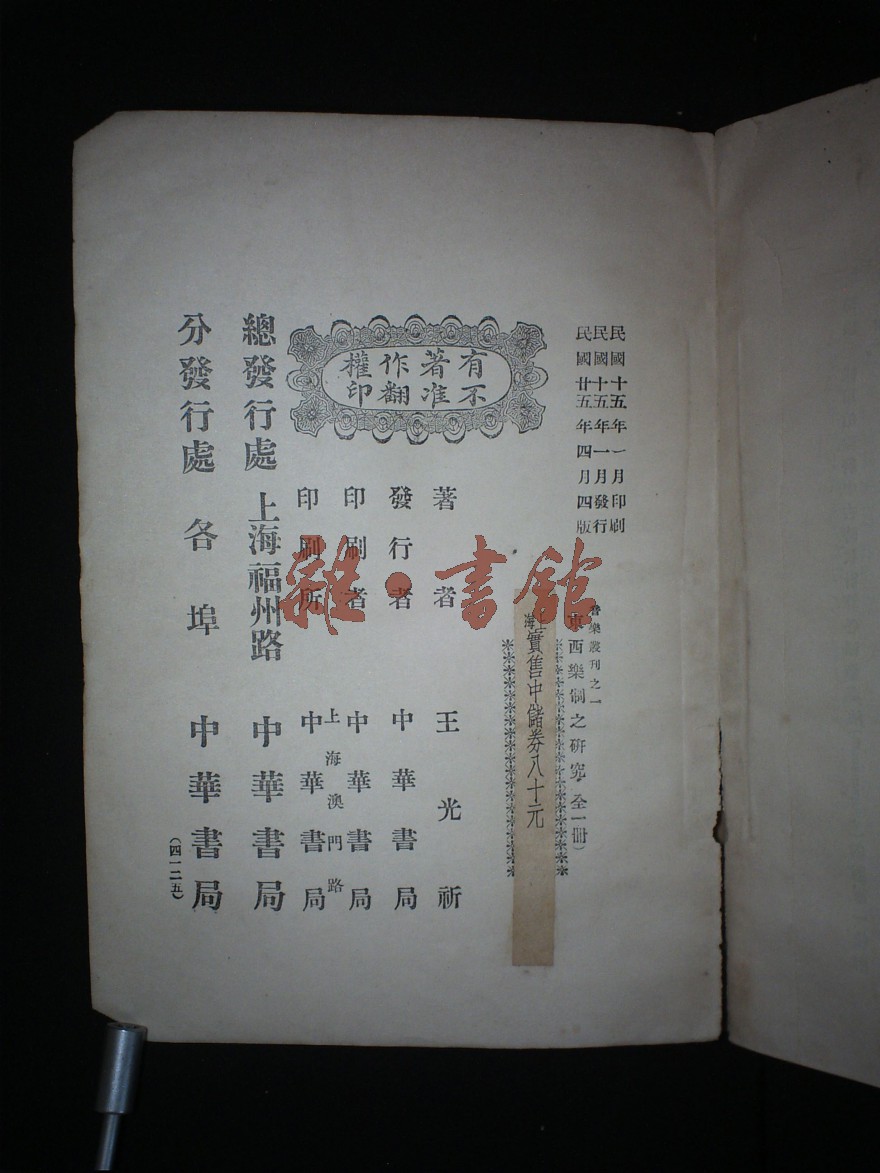 民國十五年一月印刷
民國十五年一月發行
民國廿五年四月四版
音樂叢刊之一
東西樂制之研究（全一冊）
上海實售中儲券八十元
有著作權
不准翻印
著者 王光祈
發行者 中華書局
印刷者 中華書局
印刷所 上海澳門路 中華書局
總發行處 上海福州路 中華書局
分發行處 各埠 中華書局
（四一二五）
雜·書館